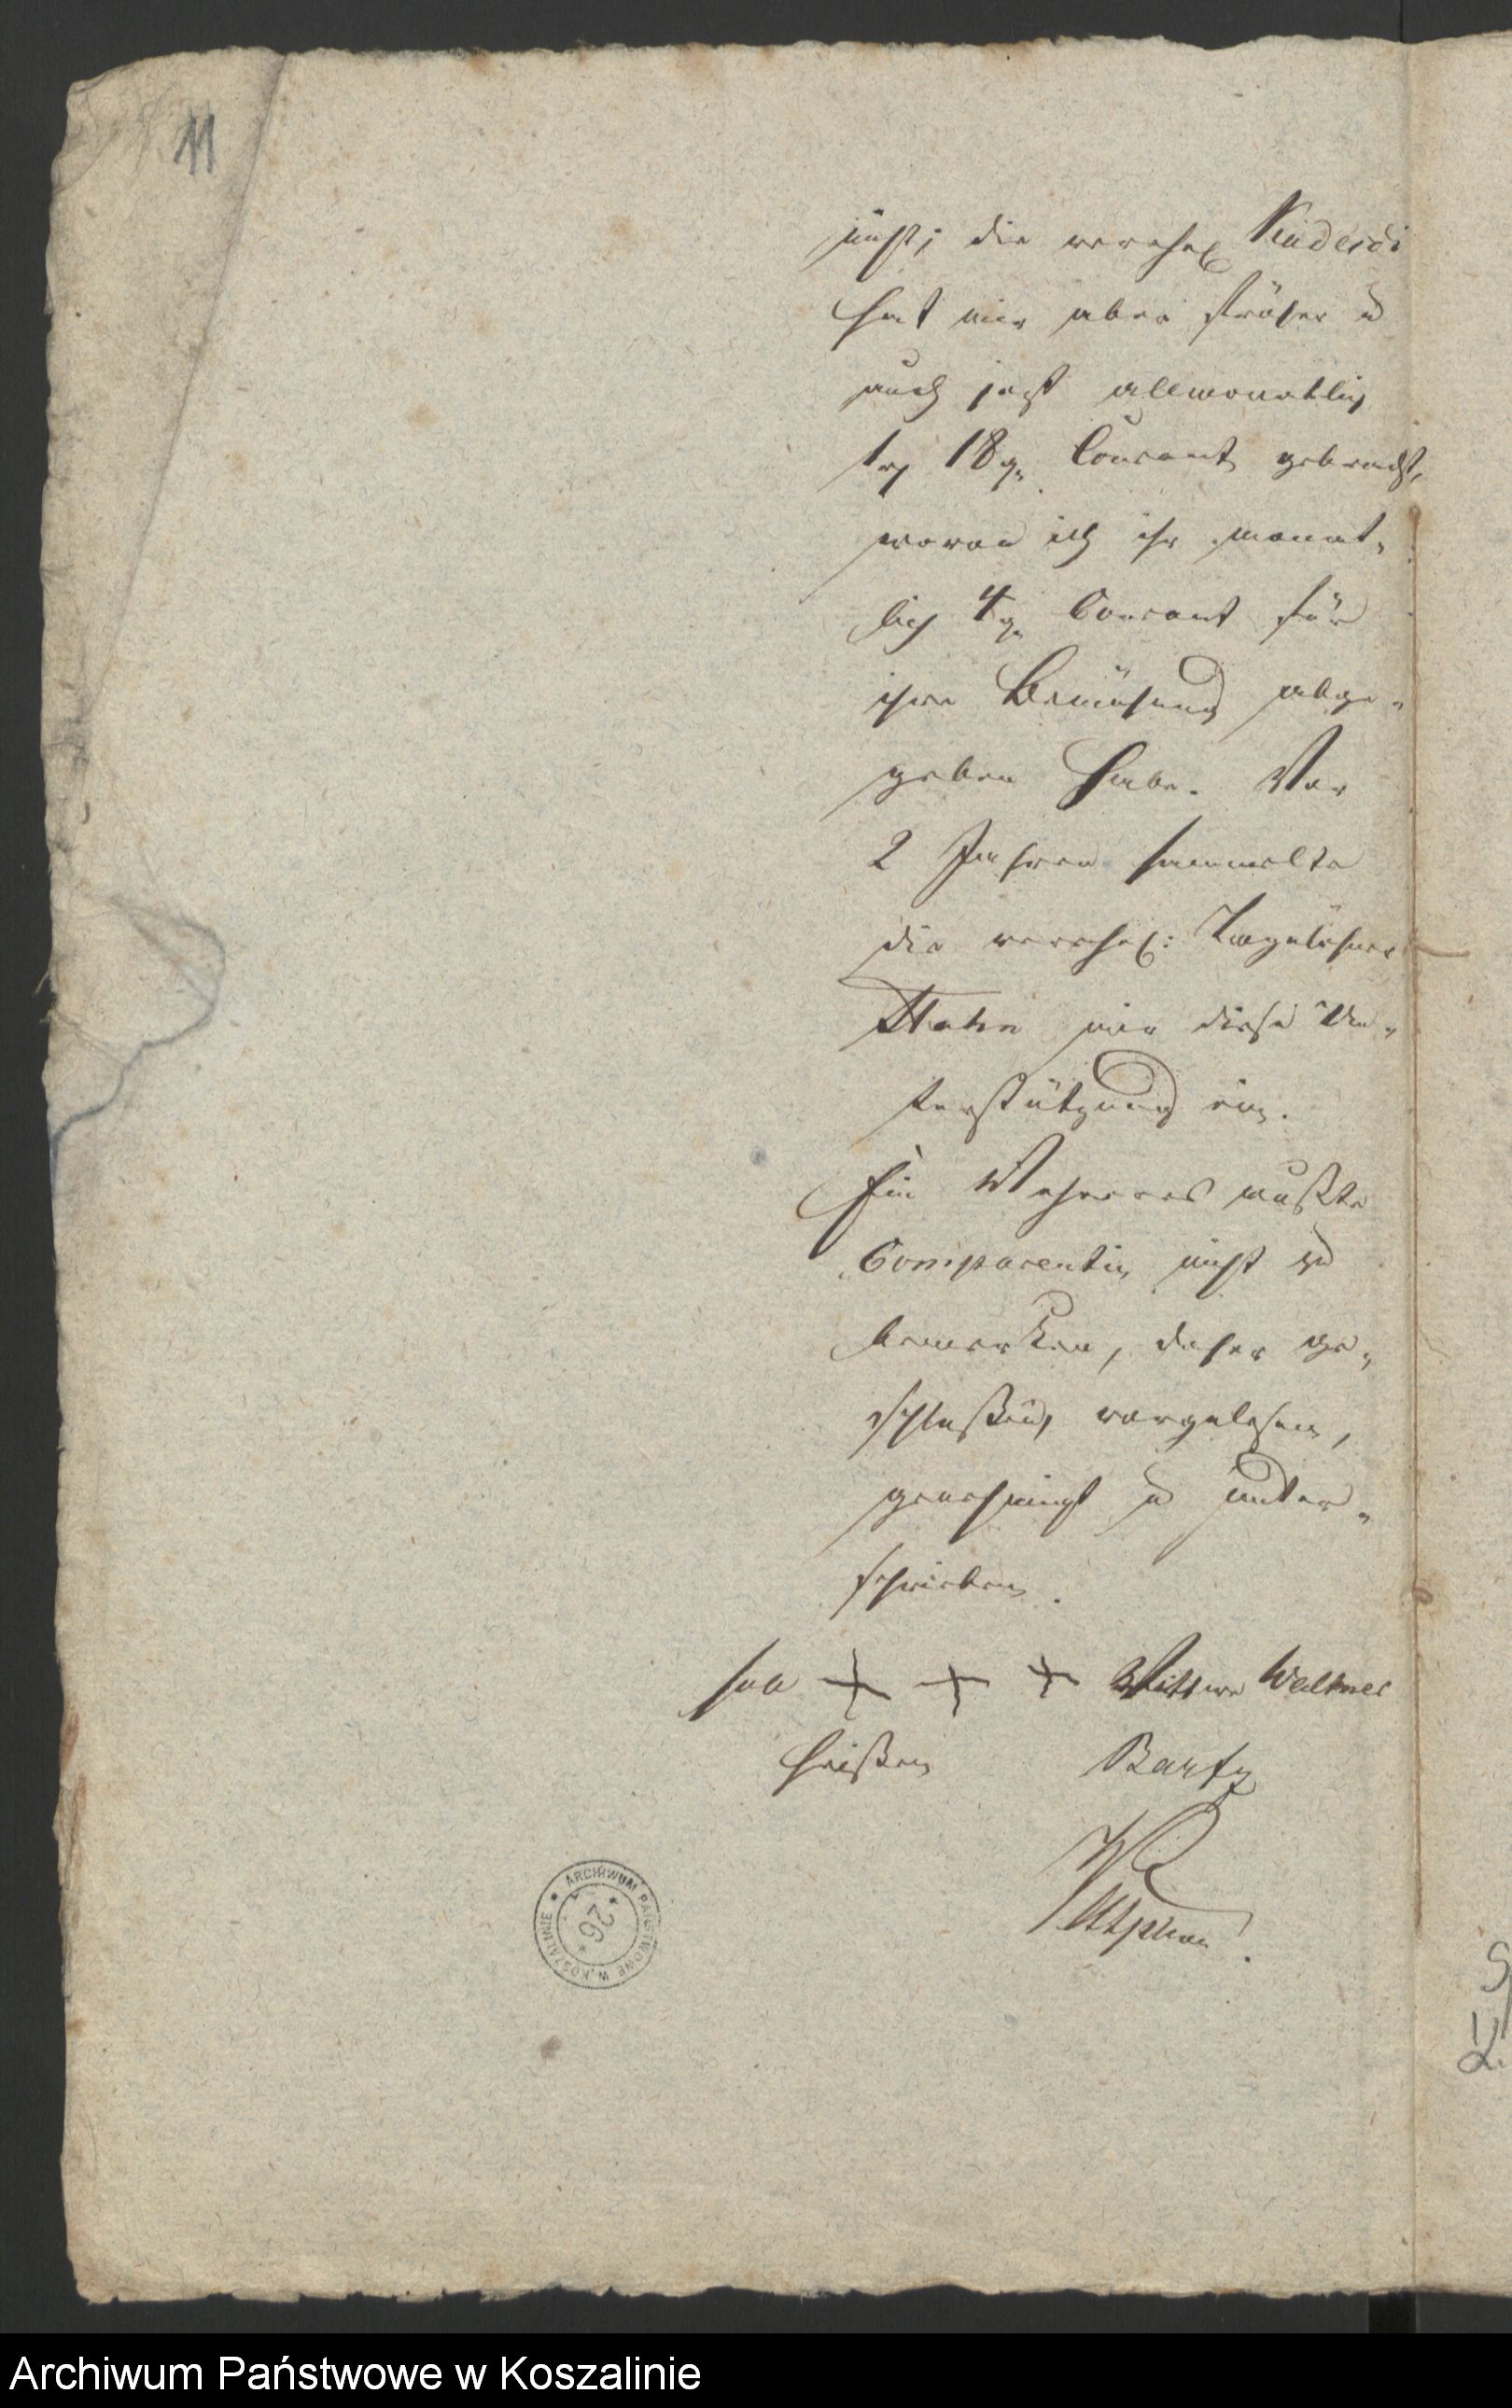 11
nicht; die verehel
hat mir aber früher u
auch jetzt allmonatlich
1 rh 18 gr Courant gebracht,
wovon ich ihr monat-
lich 4 gr Courant für
ihre Bemühung abge-
geben habe. Vor
2 Jahren sammelte
die verehel: Tagelöhner
Hahn mir diese Un-
terstützung ein.
Ein Mehreres wußte
Comparentin nicht zu
bemerken, daher ge-
schloßen, vorgelesen,
genehmigt u unter-
schrieben.
soll + + + Wittwe Weltner
heißen Bartz
ARCHIWUM PAŃSTWOWE W KOSZALINIE
26
Archiwum Państwowe w Koszalinie